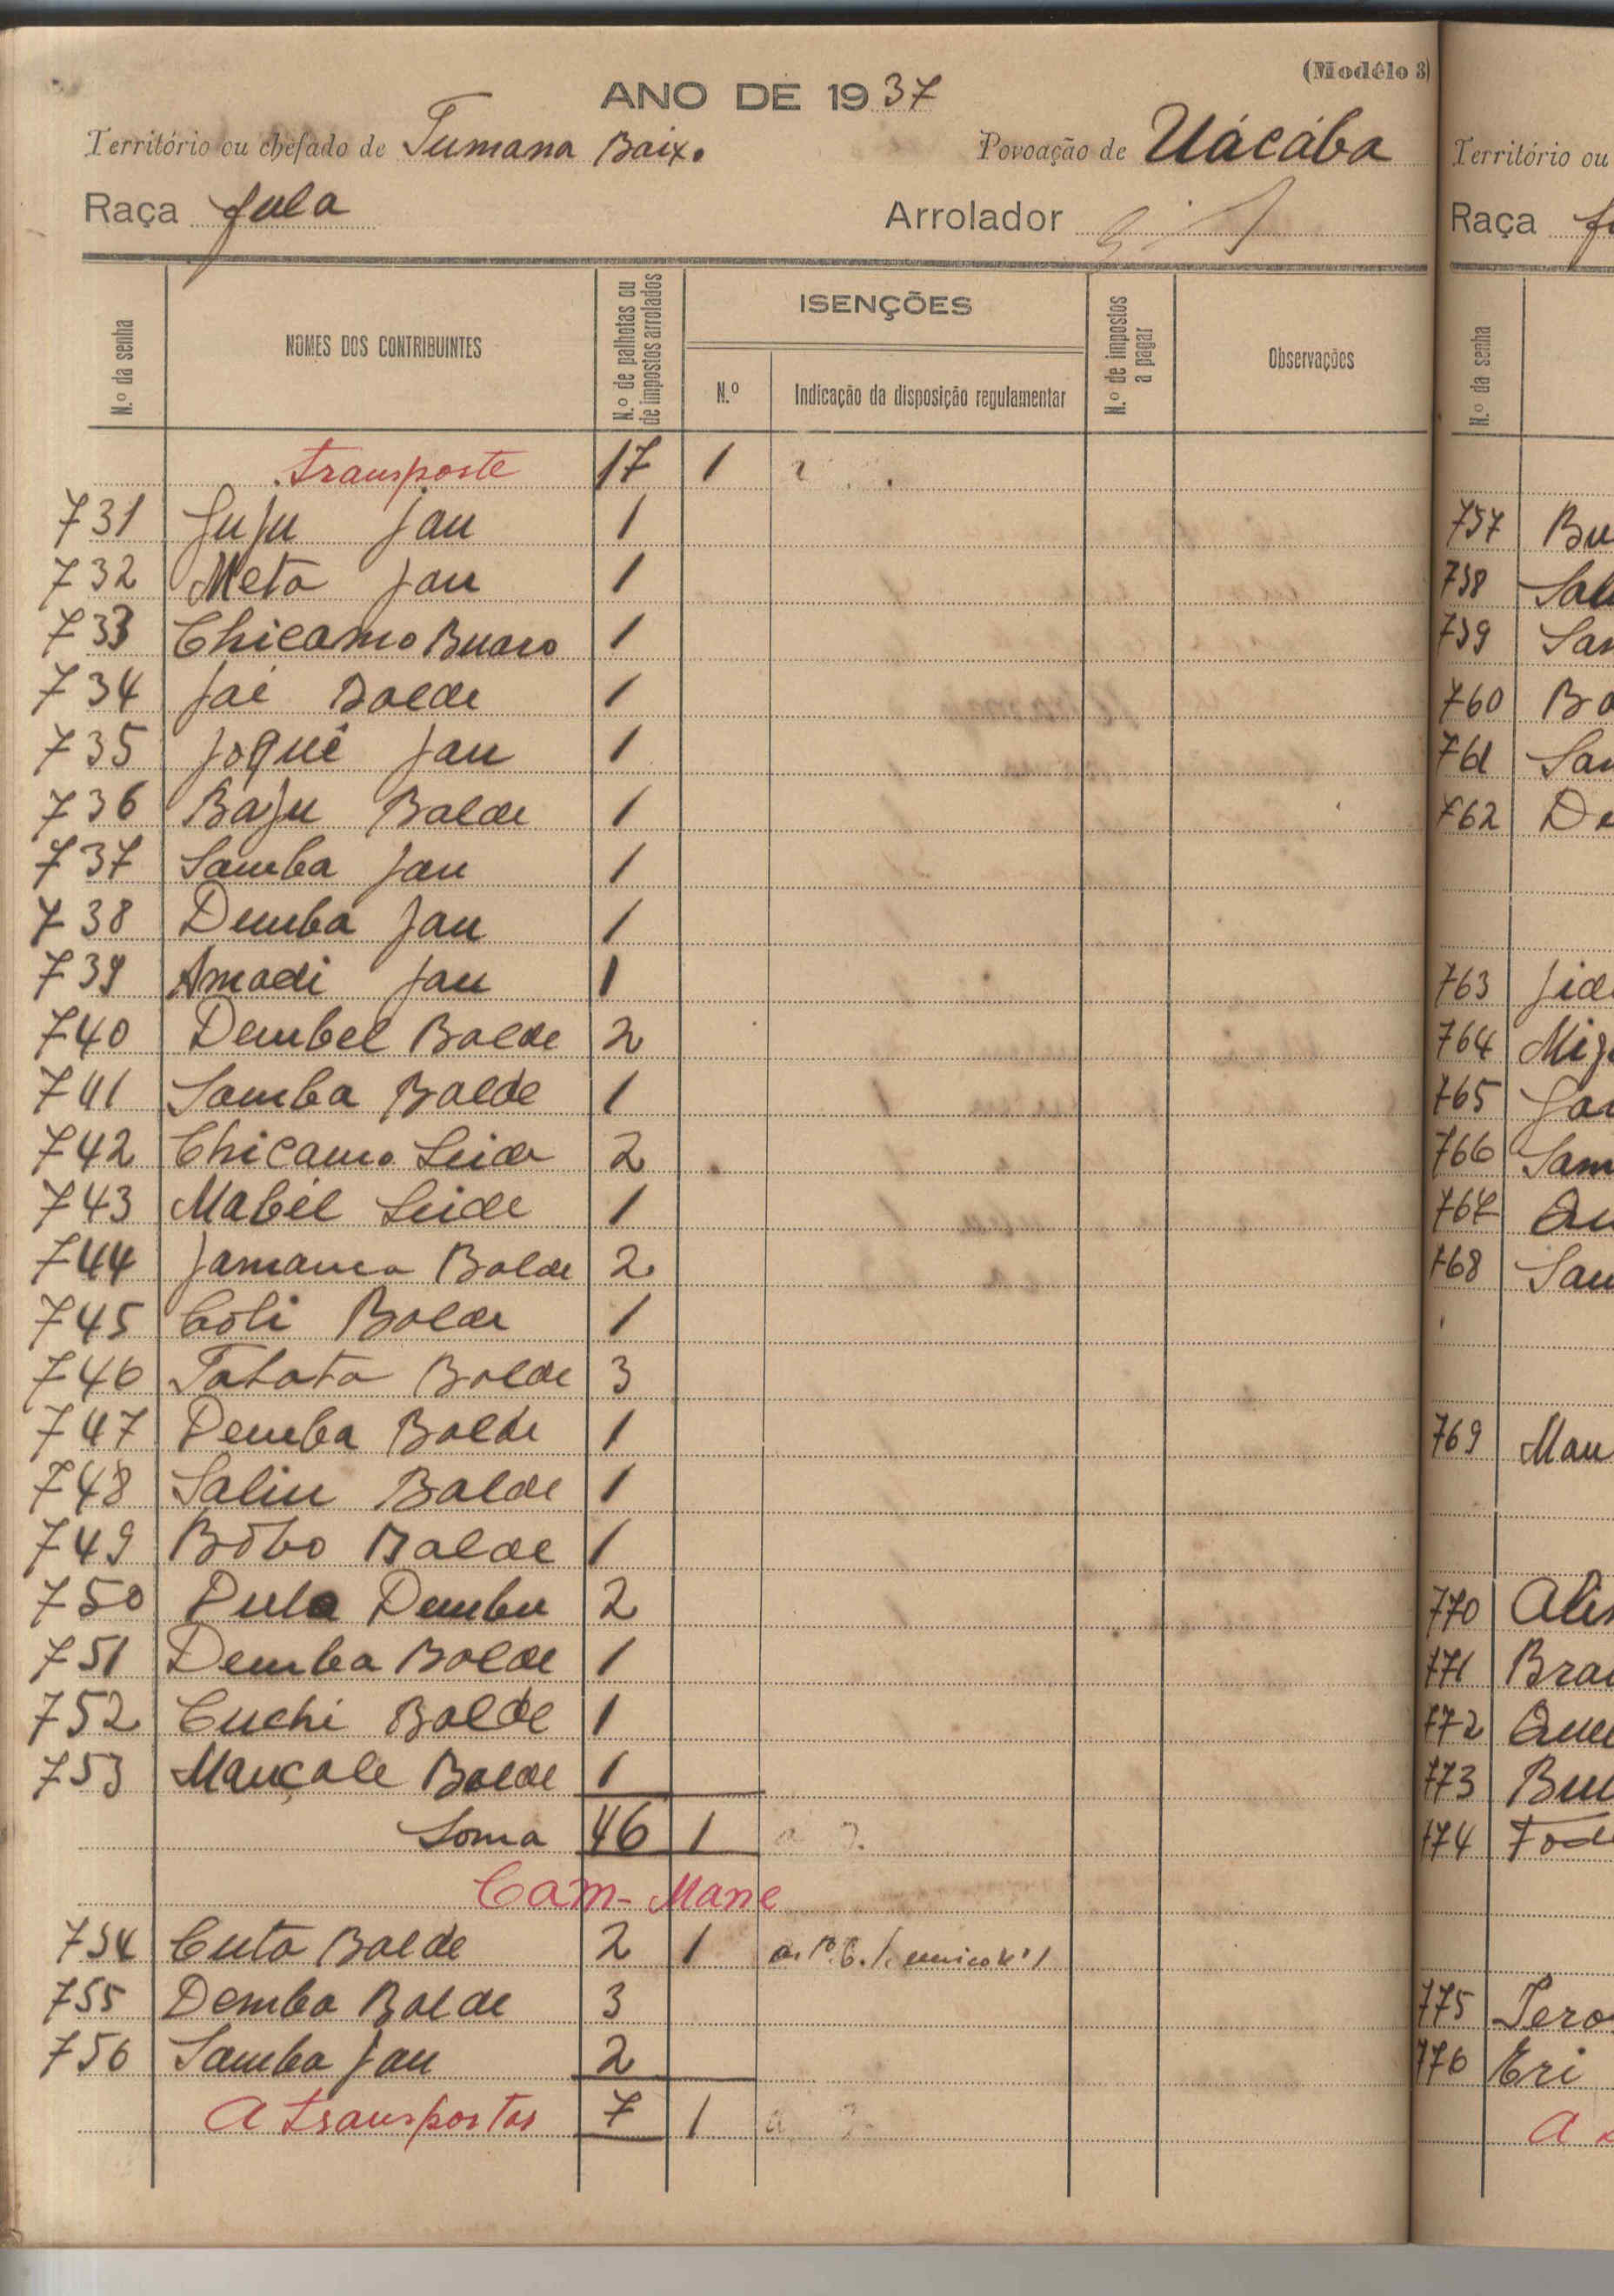 (Modêlo 3)
ANO DE 1937
Território ou chefado de Tumana Baixo
Povoação de Uácába
Raça fula
Arrolador
N.º da senha
NOMES DOS CONTRIBUINTES
N.º de palhotas ou de impostos arrolados
ISENÇÕES
N.º
Indicação da disposição regulamentar
N.º de impostos a pagar
Observações
Transporte 17 1
731 Juju Jau 1
732 Meta Jau 1
733 Chicamo Buaro 1
734 Jaé Balde 1
735 Joquê Jau 1
736 Baju Balde 1
737 Samba Jau 1
738 Demba Jau 1
739 Amadi Jau 1
740 Dembel Balde 2
741 Samba Balde 1
742 Chicamo Seide 2
743 Mabél Seide 1
744 Jamanca Balde 2
745 Coli Balde 1
746 Balde 3
747 Demba Balde 1
748 Saliu Balde 1
749 Bôbo Balde 1
750 Pula Demba 2
751 Demba Balde 1
752 Cuchi Balde 1
753 Mançale Balde 1
Soma 46 1
Cam-Mane
754 Cuta Balde 2 1
755 Demba Balde 3
756 Samba Jau 2
A transportar 7 1
Território ou
Raça
N.º da senha
757 Bu
758 Sal
759 Sam
760 Ba
761 Sam
762 De
763 Jid
764
765
766 Sam
767
768 Sam
769 Mau
770
771 Bra
772
773
774 Fod
775
776 Eri
A